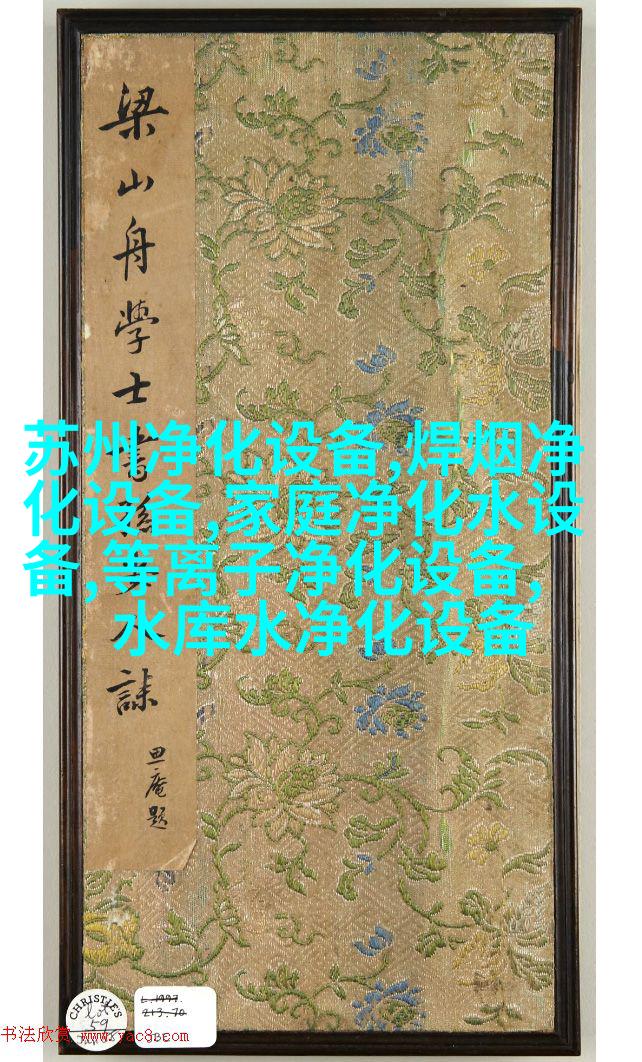 梁山舟學士書孫夫人誄
庵題
苏州净化设备,焊烟净
化设备,家庭净化水设
备,等离子净化设备,
水库水净化设备
CHRISTIE'S
lot
59
L.1997.
213.70
书法欣赏 www.yac8.com